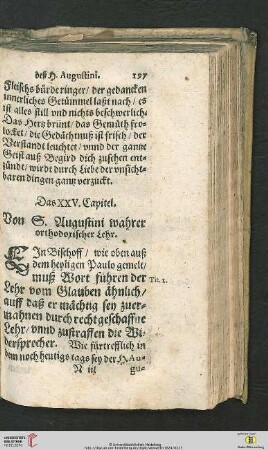 deß H. Augustini. 197
Fleischs bürde ringer / der gedancken
innerliches Getümmel laßt nach / es
ist alles still vnd nichts beschwerlich.
Das Hertz brünt / das Gemüth fro-
locket / die Gedächtnuß ist frisch / der
Verstandt leuchtet / vnnd der gantze
Geist auß Begird dich zusehen ent-
zündt / wirdt durch Liebe der vnsicht-
baren dingen gantz verzuckt.
Das XXV. Capitel.
Von S. Augustini wahrer
orthodoxischer Lehr.
EIn Bischoff / wie oben auß
dem heyligen Paulo gemelt /
muß Wort führen der Tit. 1.
Lehr vom Glauben ähnlich /
auff daß er mächtig sey zuer-
mahnen durch rechtgeschaffne
Lehr / vnnd zustraffen die Wi-
dersprecher. Wie fürtrefflich in
dem noch heutigs tags sey der H. Au-
N iij gu-